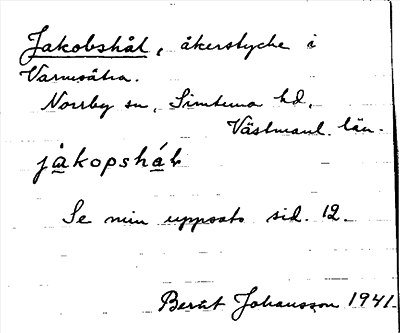 Jakobshål, åkerstycke i
Varmsätra.
Norrby sn, Simtuna hd,
Västmanl. län.
jåkopshál
Se min uppsats sid. 12.
Berät Johansson 1941.